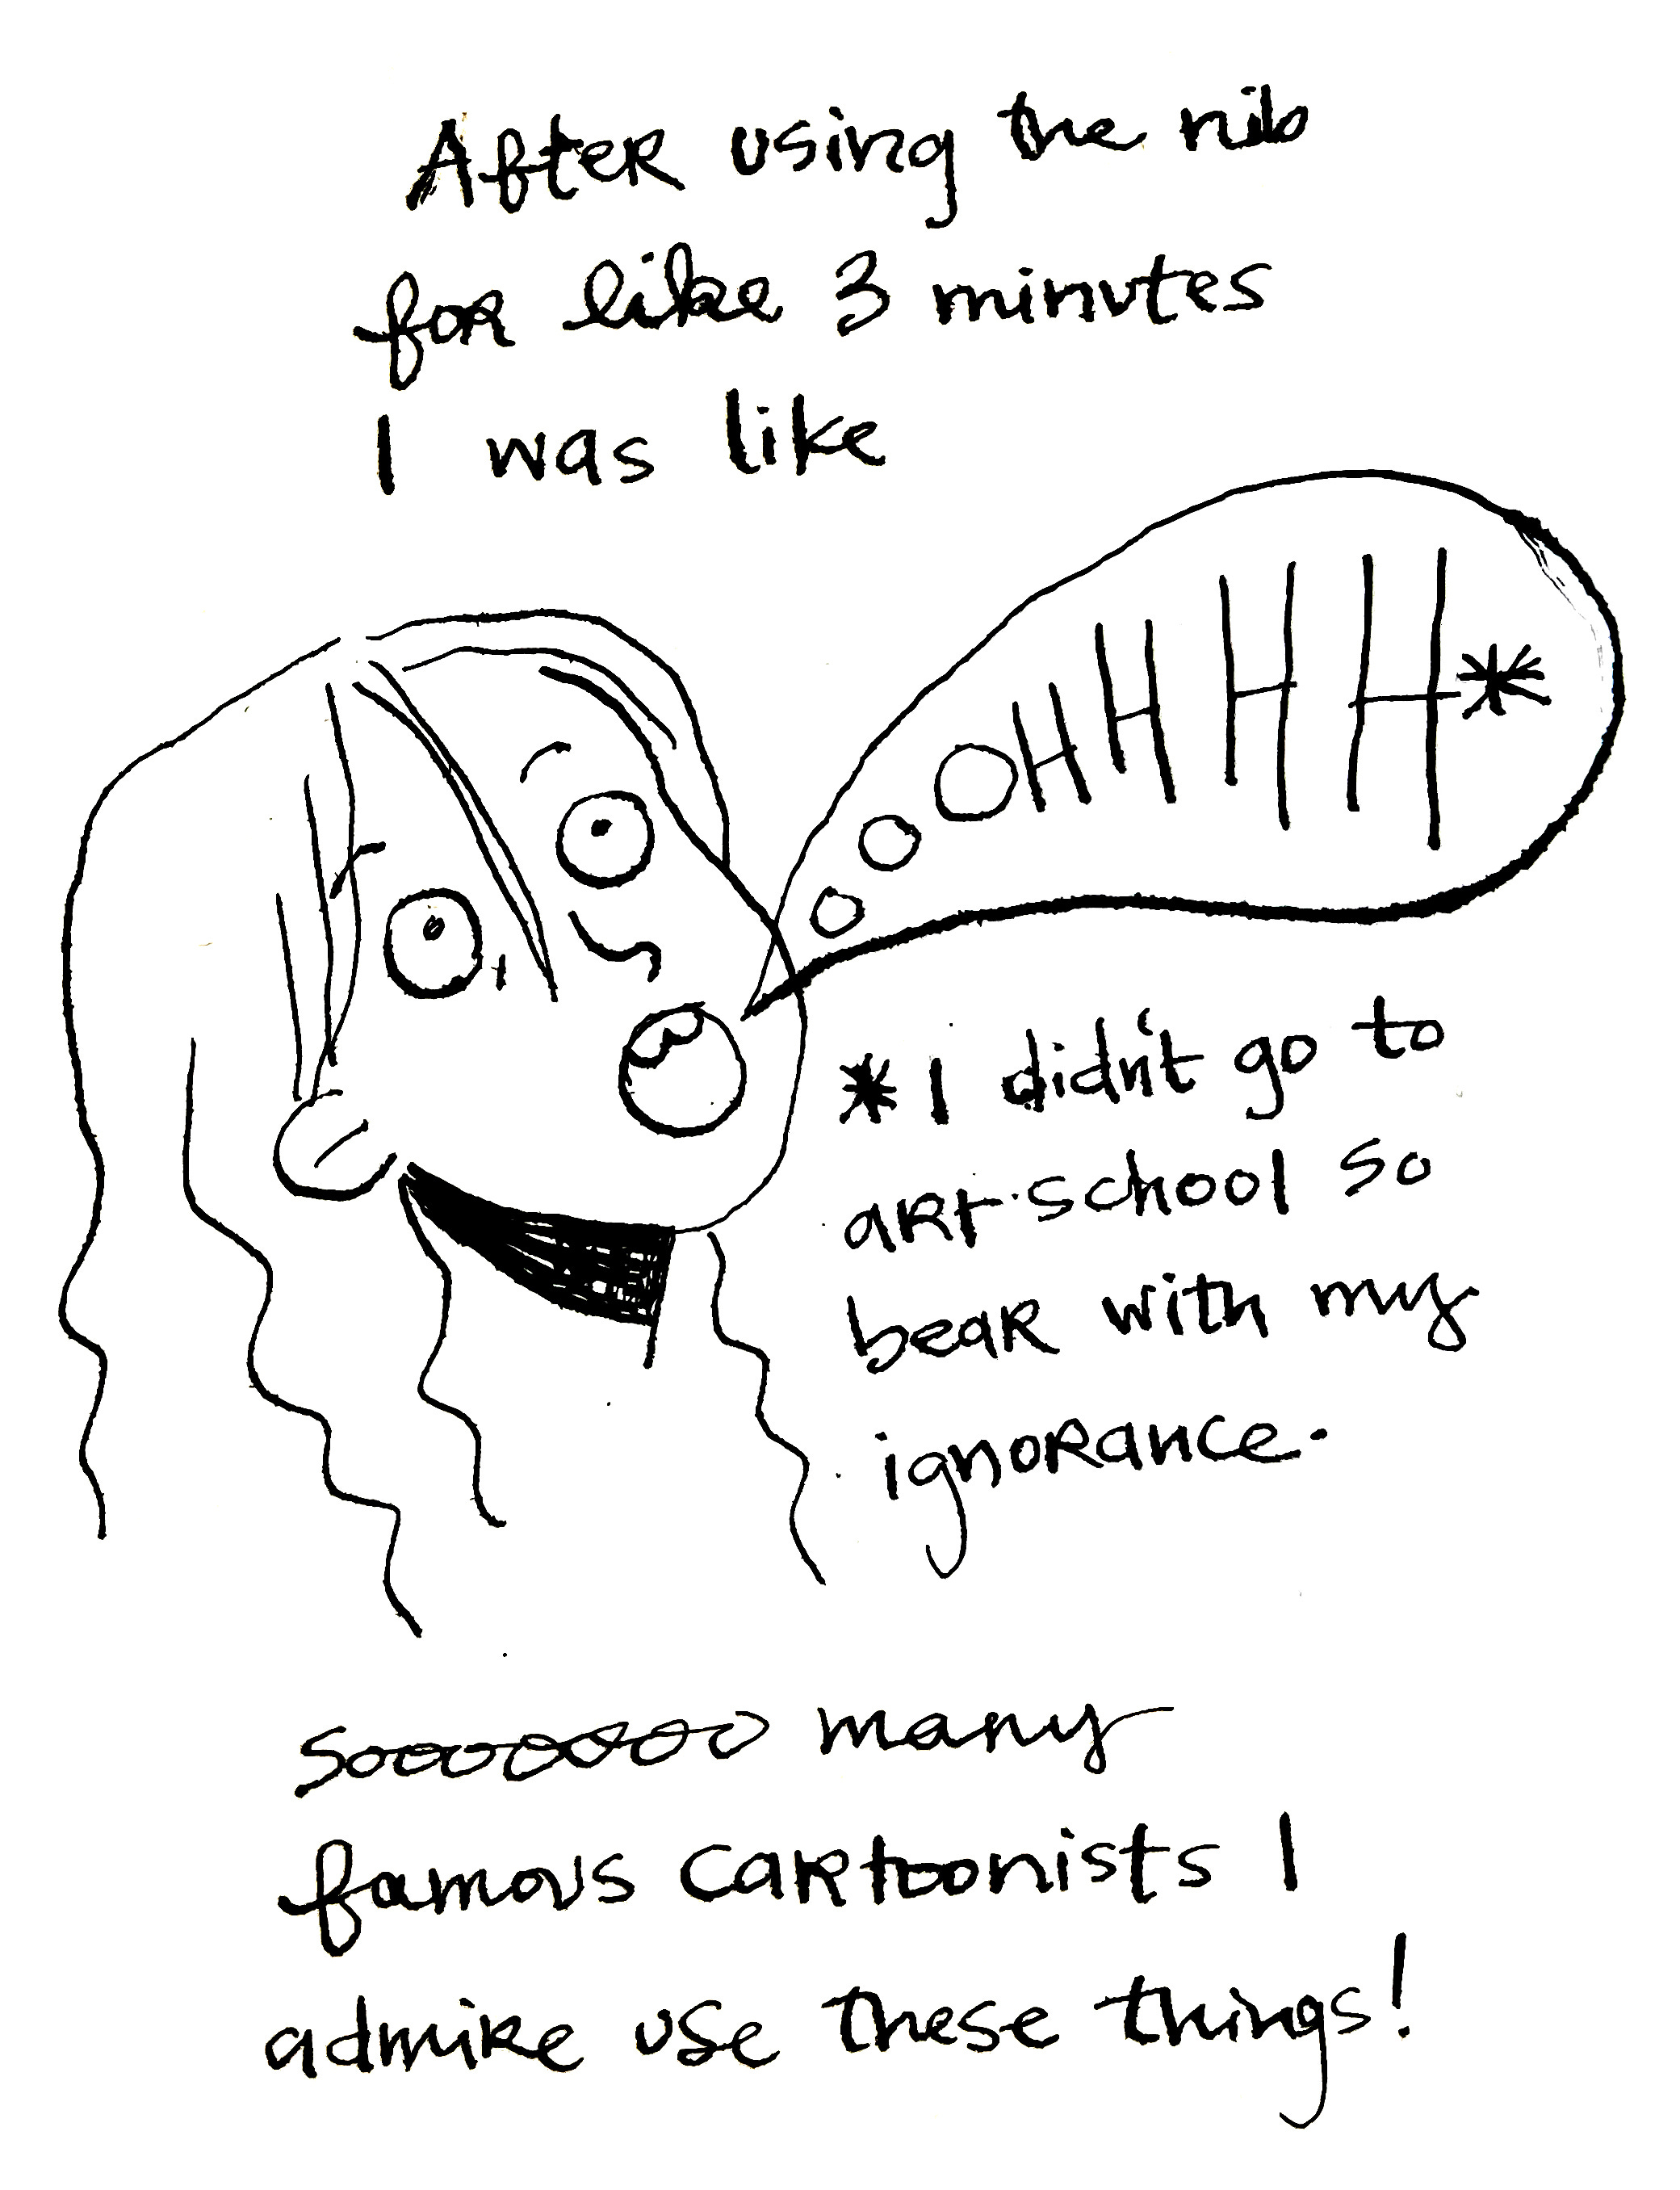 After using the nib
for like 3 minutes
I was like
OOOHHHHH*
*I didn't go to
art school so
bear with my
ignorance.
Sooooooo many
famous cartoonists I
admire use these things!